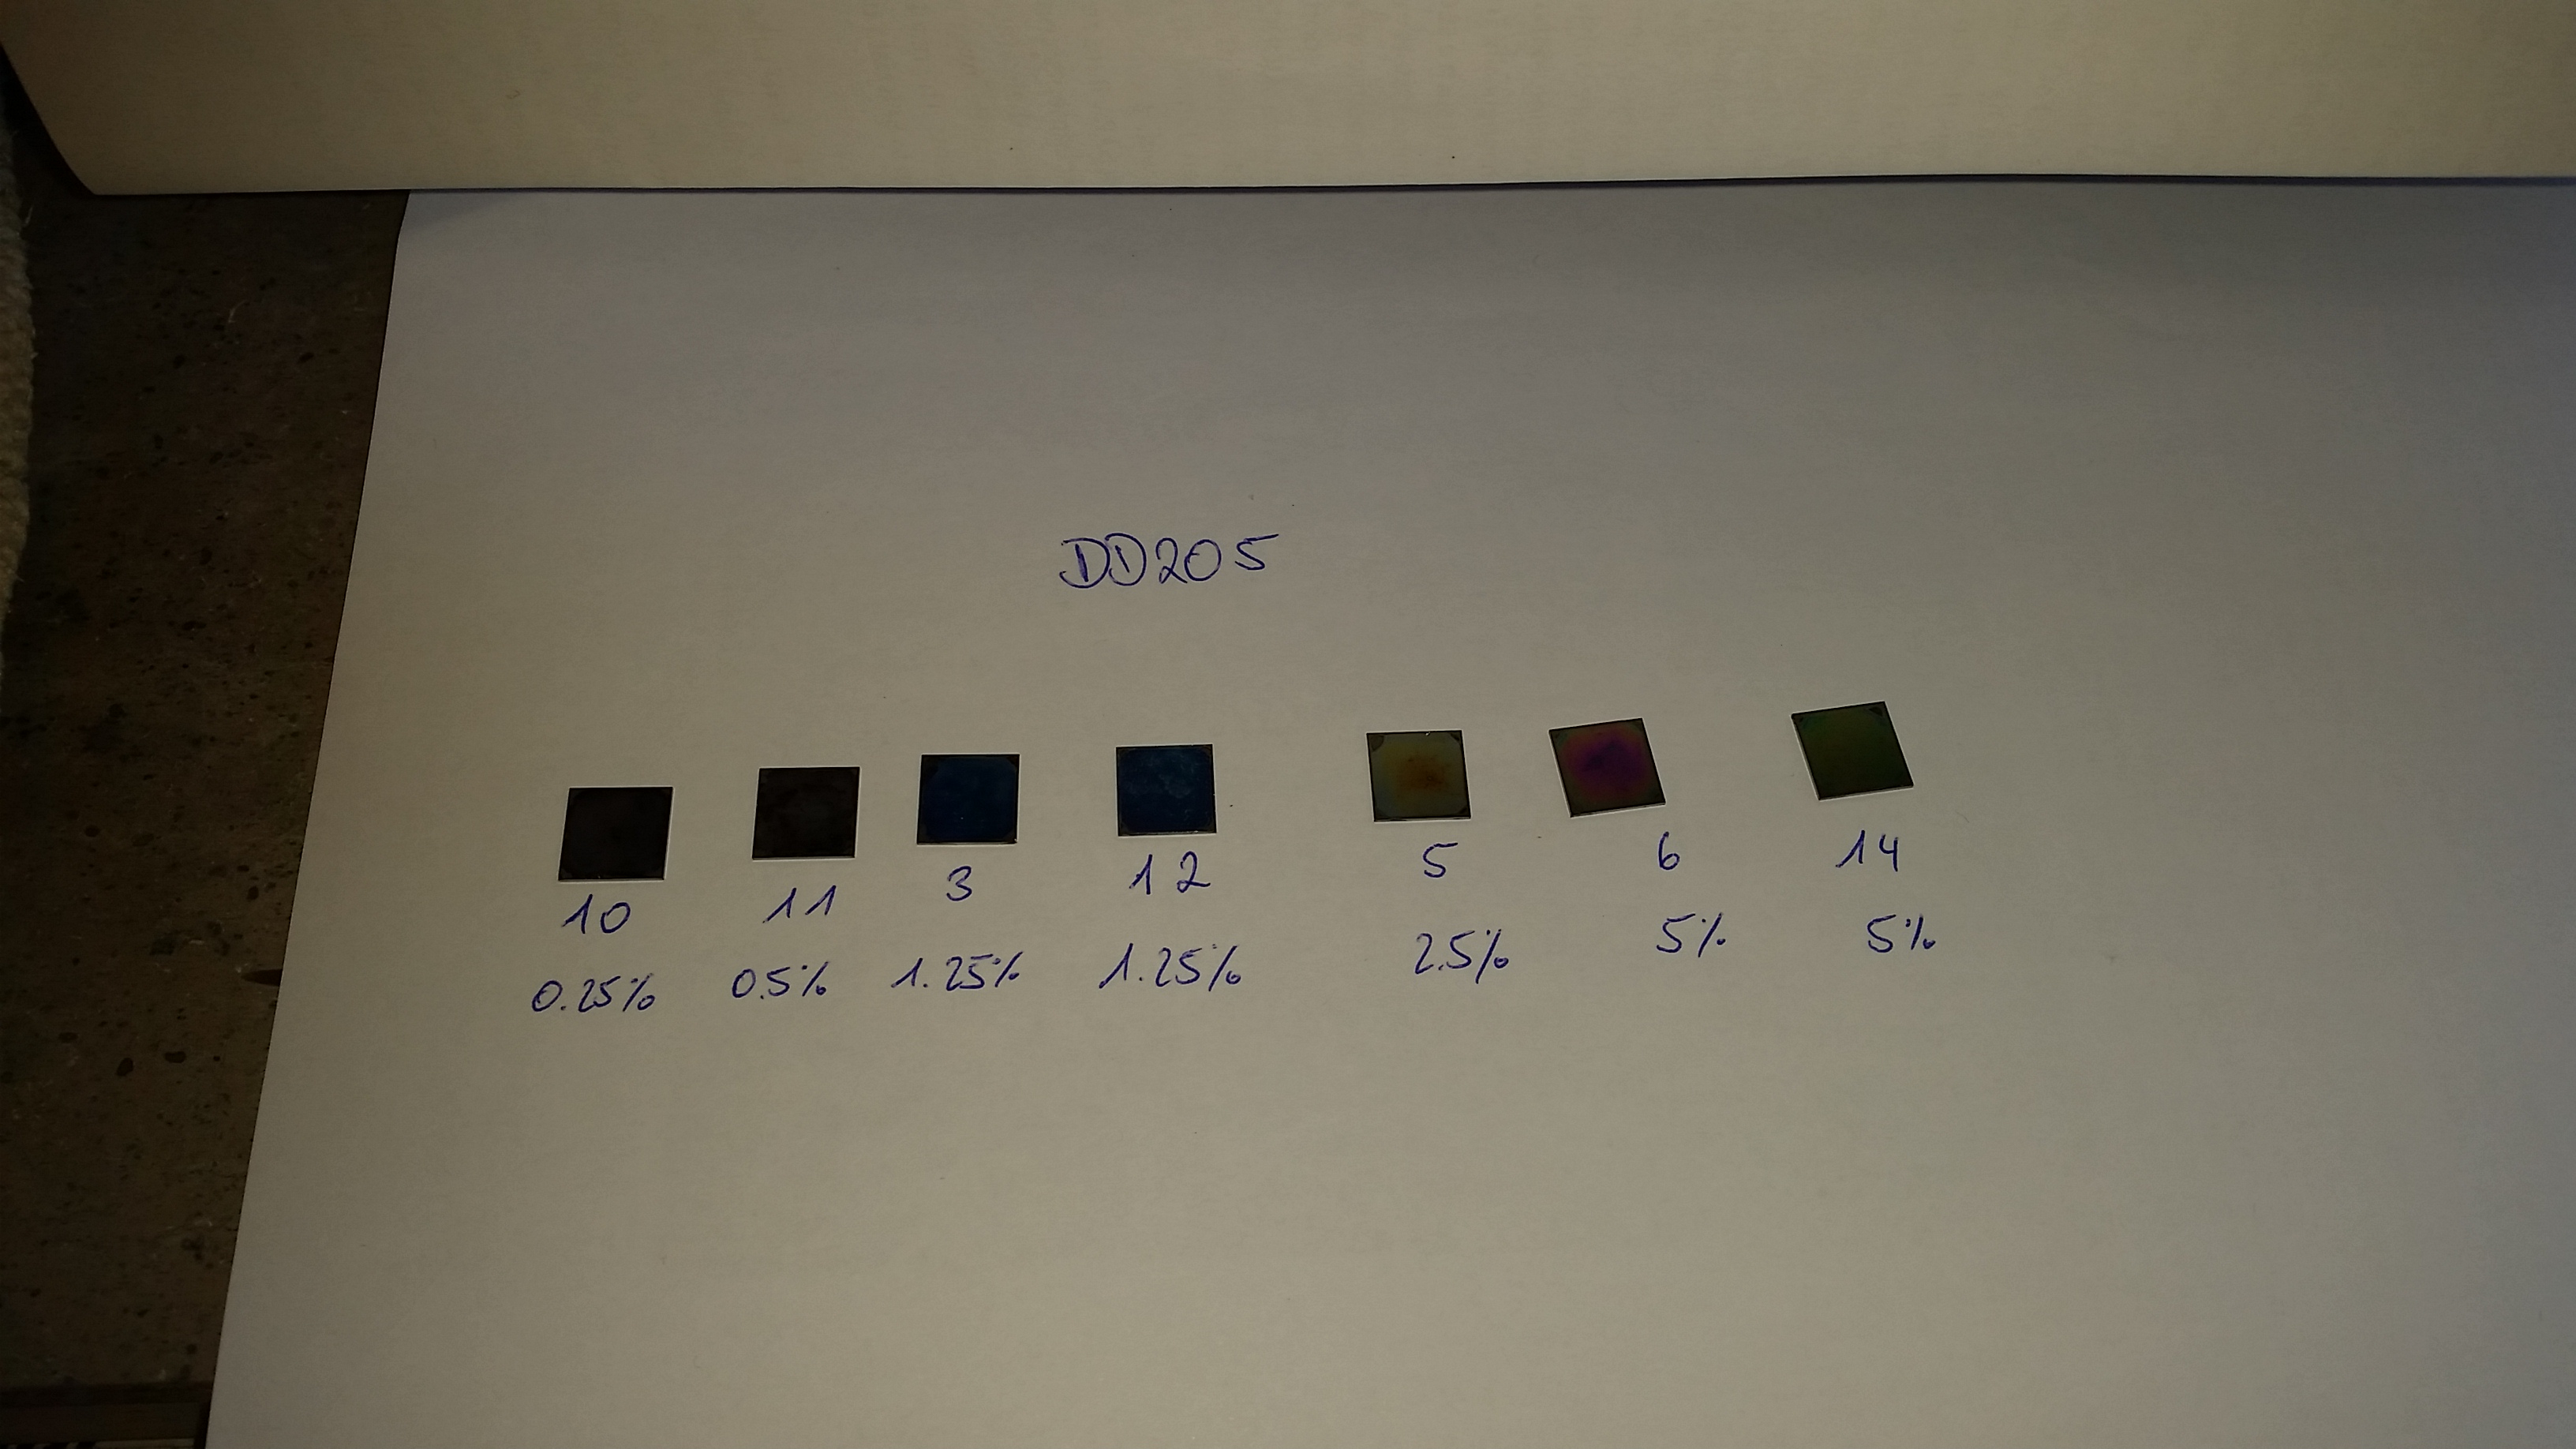 DD205
10 11 3 12 5 6 14
0.25% 0.5% 1.25% 1.25% 2.5% 5% 5%